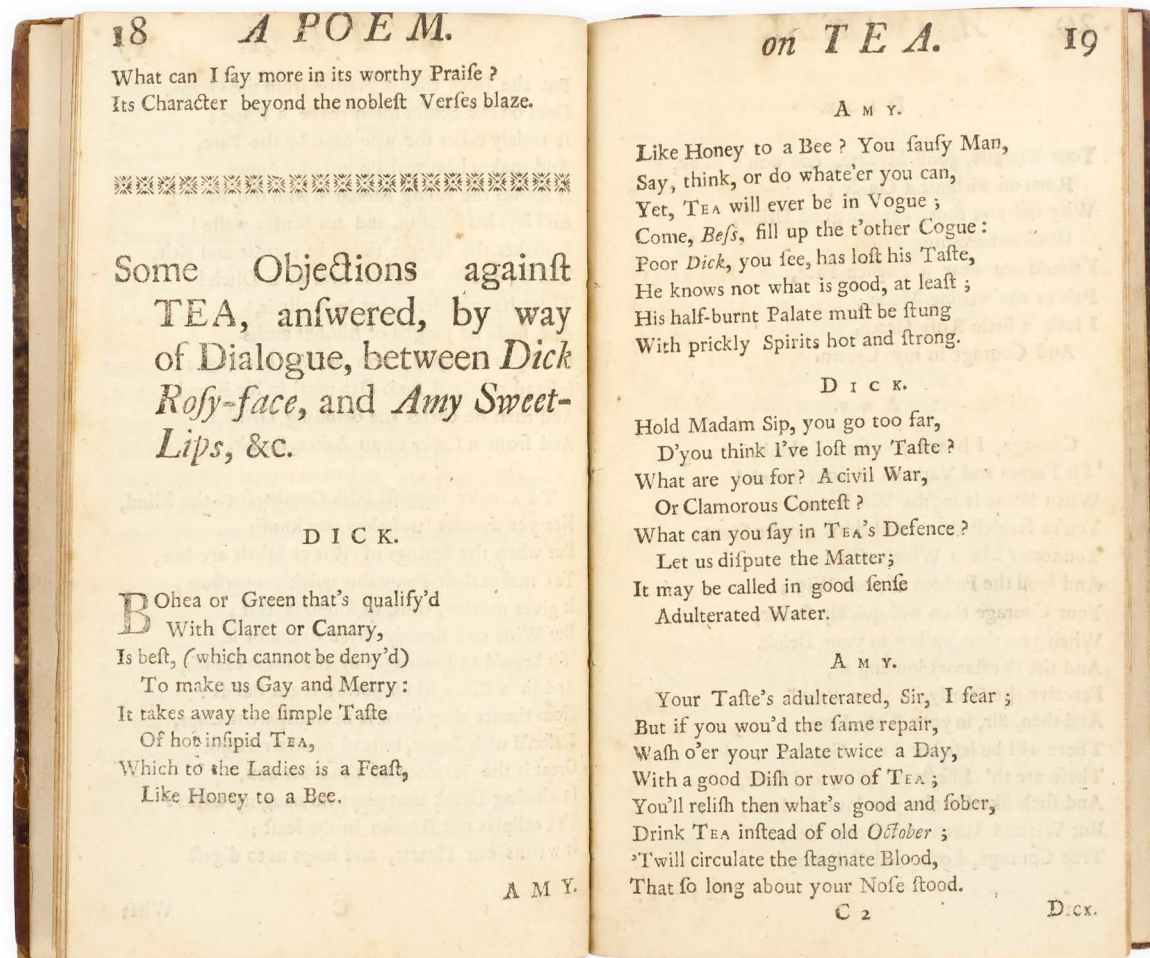 18 A POEM.
What can I ſay more in its worthy Praiſe ?
Its Character beyond the nobleſt Verſes blaze.
Some Objections againſt
TEA, anſwered, by way
of Dialogue, between Dick
Roſy-face, and Amy Sweet-
Lips, &c.
DICK.
BOhea or Green that's qualify'd
With Claret or Canary,
Is beſt, (which cannot be deny'd)
To make us Gay and Merry :
It takes away the ſimple Taſte
Of hot inſipid TEA,
Which to the Ladies is a Feaſt,
Like Honey to a Bee.
AMY.
on TEA. 19
AMY.
Like Honey to a Bee ? You ſauſy Man,
Say, think, or do whate'er you can,
Yet, TEA will ever be in Vogue ;
Come, Beſs, fill up the t'other Cogue :
Poor Dick, you ſee, has loſt his Taſte,
He knows not what is good, at leaſt ;
His half-burnt Palate muſt be ſtung
With prickly Spirits hot and ſtrong.
DICK.
Hold Madam Sip, you go too far,
D'you think I've loſt my Taſte ?
What are you for? A civil War,
Or Clamorous Conteſt ?
What can you ſay in TEA's Defence ?
Let us diſpute the Matter;
It may be called in good ſenſe
Adulterated Water.
AMY.
Your Taſte's adulterated, Sir, I fear ;
But if you wou'd the ſame repair,
Waſh o'er your Palate twice a Day,
With a good Diſh or two of TEA ;
You'll reliſh then what's good and ſober,
Drink TEA inſtead of old October ;
'Twill circulate the ſtagnate Blood,
That ſo long about your Noſe ſtood.
C 2 DICK.